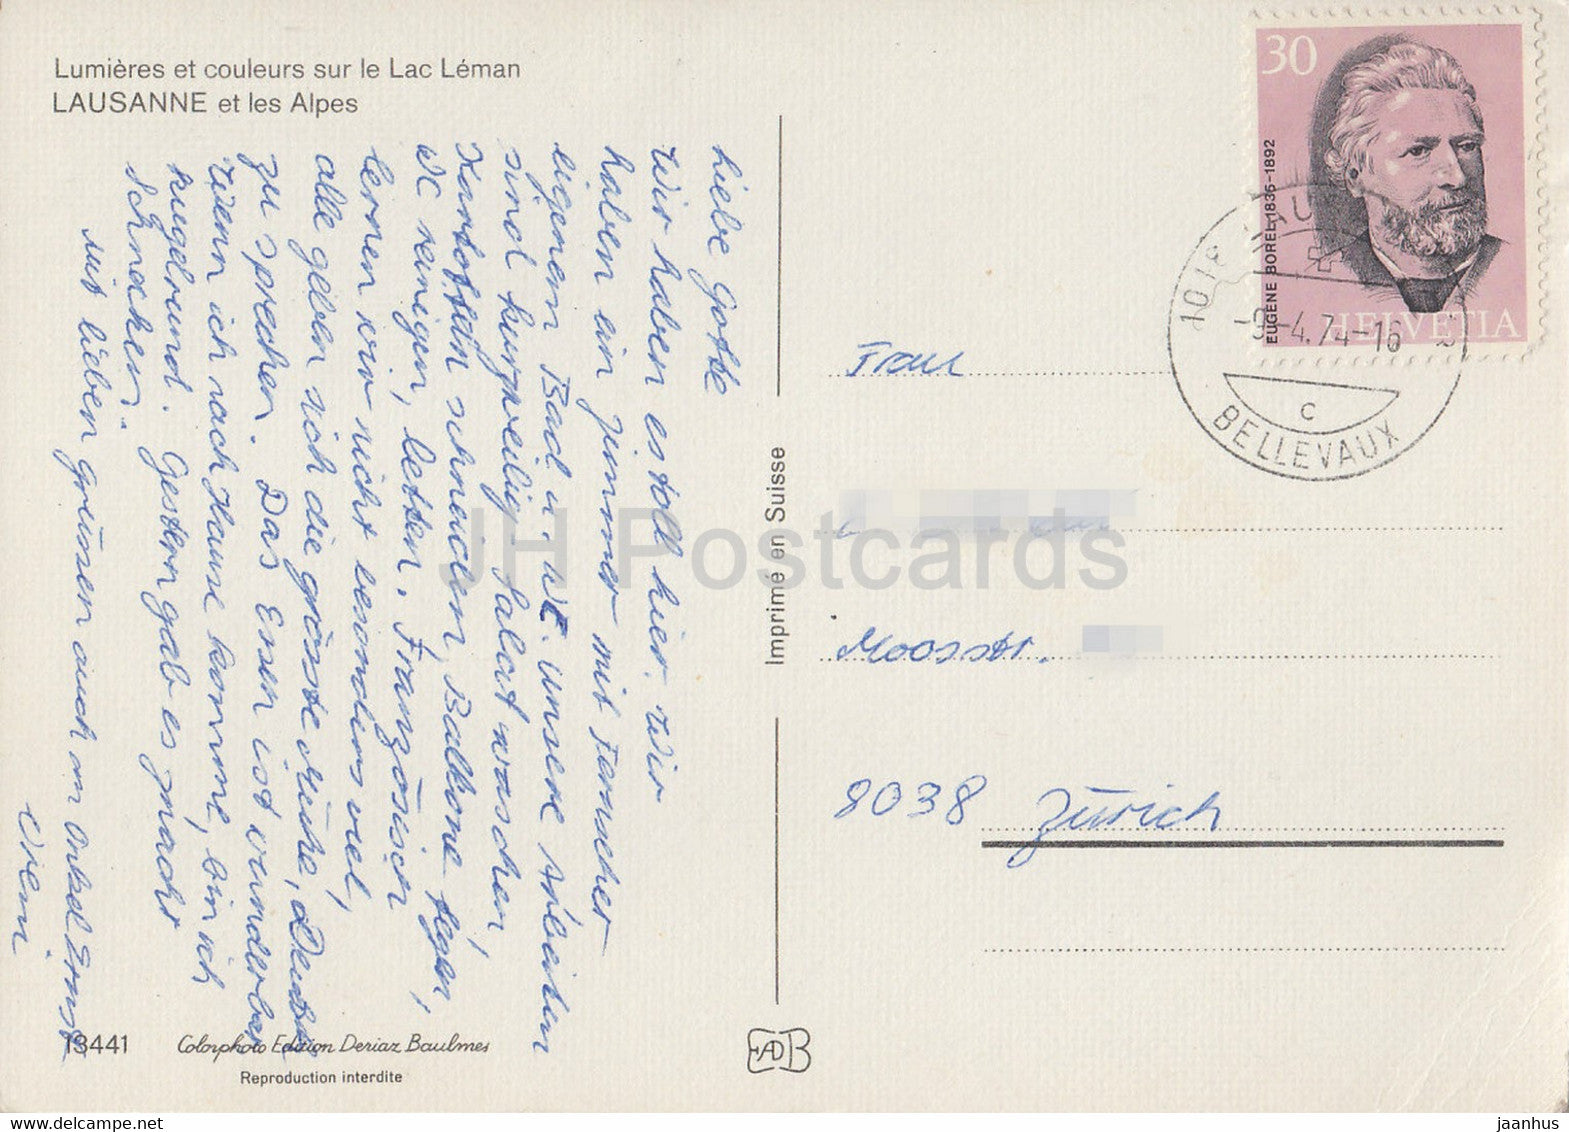 Lumières et couleurs sur le Lac Léman
LAUSANNE et les Alpes
liebe Gotte
Wir haben es toll hier. Wir
haben ein Zimmer mit Fernseher
eigenem Bad u. WC. Unsere Arbeiten
sind kurzweilig. Salat waschen,
Kartoffeln schneiden, Balkone fegen,
WC reinigen, betten. Französisch
lernen wir nicht besonders viel,
alle geben sich die grösste Mühe, Deutsch
zu sprechen. Das Essen ist wunderbar
Wenn ich nach Hause komme, bin ich
kugelrund. Gestern gab es zmacht
Schnecken.
mit lieben grüssen auch an Onkel Ernst
13441
Colorphoto Edition Deriaz Baulmes
Reproduction interdite
Imprimé en Suisse
EADB
30
EUGÈNE BOREL 1835-1892
HELVETIA
-9-4.74-16
C
BELLEVAUX
Frau
Moosstr.
8038 Zürich
JH Postcards
jaanhus